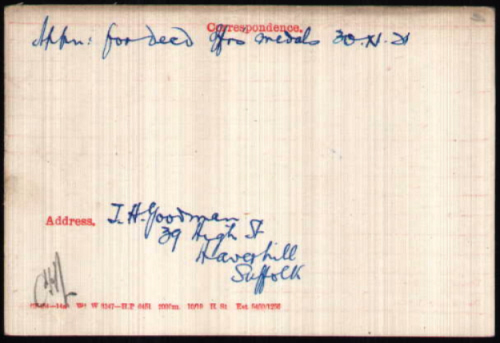 Correspondence.
Appn: for decd offrs medals 30.XI.21
Address. J. H. Goodman
39 High St
Haverhill
Suffolk